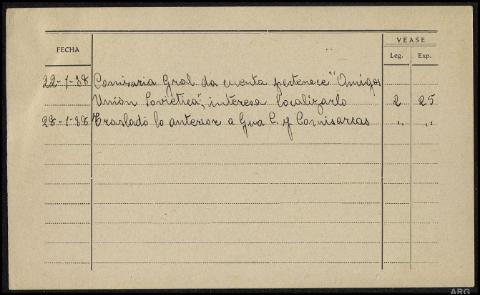 VEASE
FECHA Leg. Exp.
22-1-38 Comisaria Gral. da cuenta pertenece "Amigos
Union Sovietica", interesa localizarlo 2 25
28-1-38 Traslado lo anterior a Gua C. y Comisarias " "
ARG